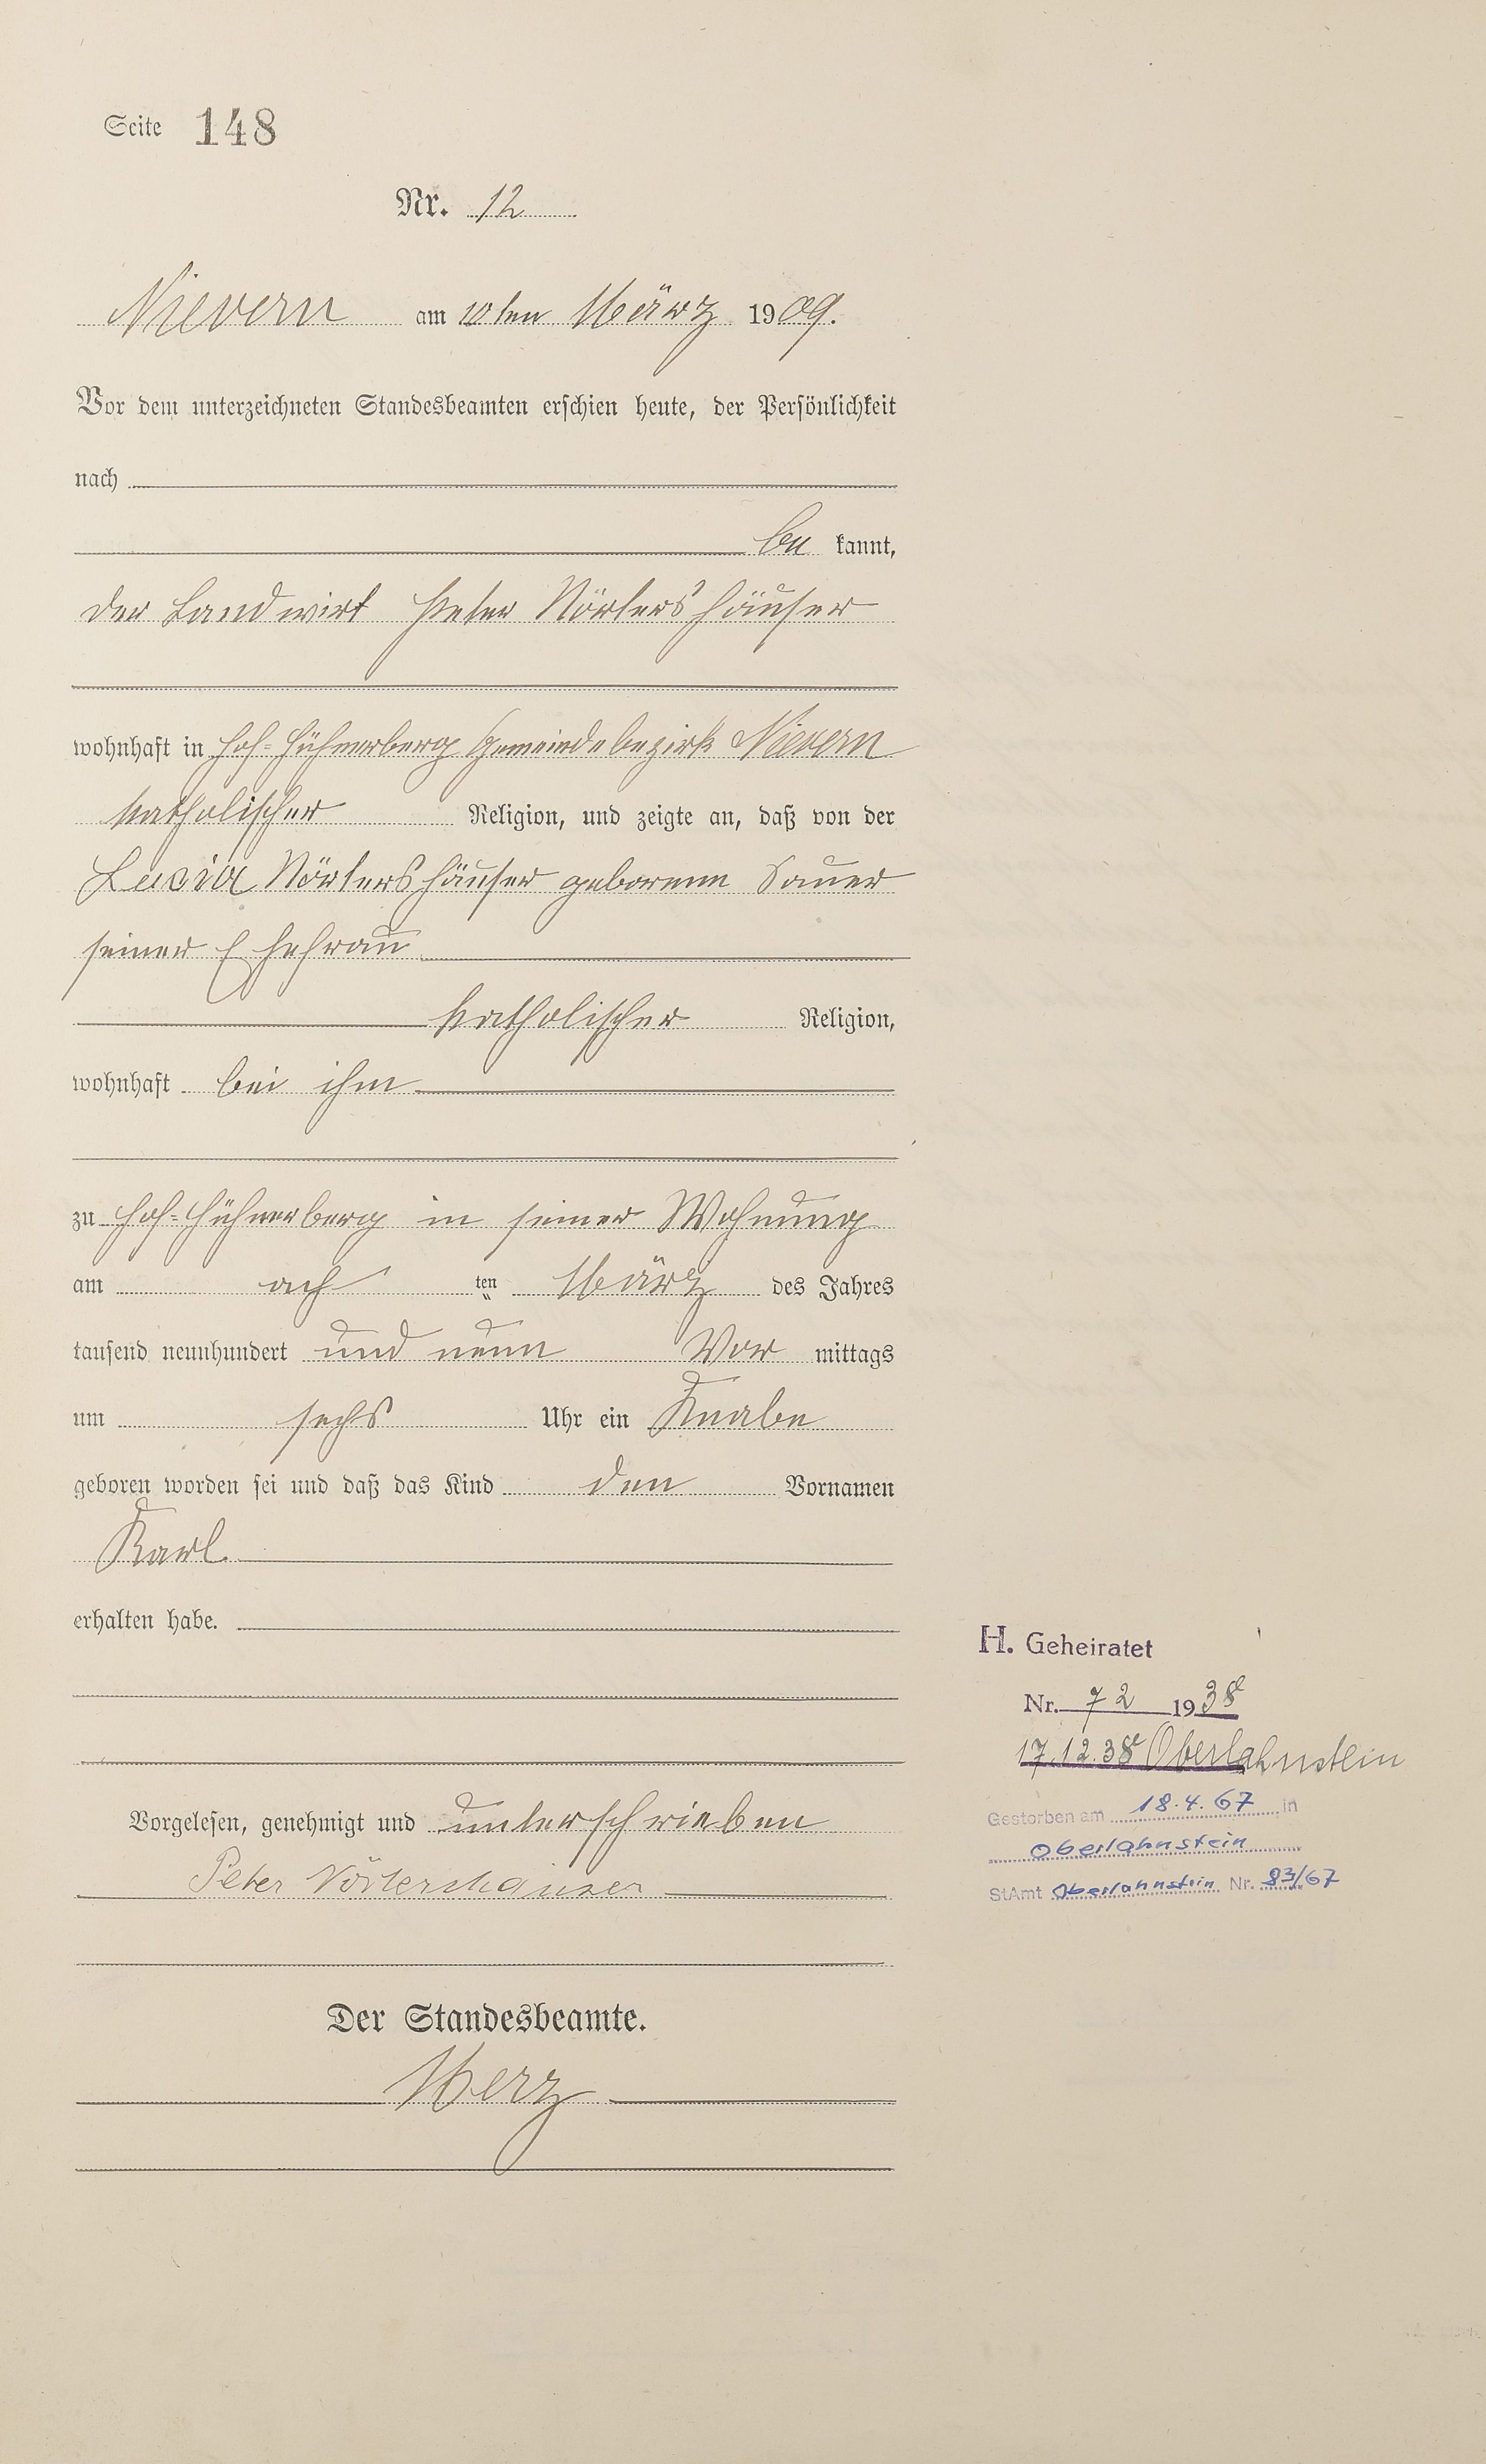 Seite 148
Nr. 12
Nievern am 10ten März 1909.
Vor dem unterzeichneten Standesbeamten erschien heute, der Persönlichkeit
nach
be kannt,
der Landwirt Peter Nörtershäuser
wohnhaft in Hof-Hühnerberg Gemeindebezirk Nievern
katholischer Religion, und zeigte an, daß von der
Lucia Nörtershäuser geborenen Sauer
seiner Ehefrau
katholischer Religion,
wohnhaft bei ihm
zu Hof-Hühnerberg in seiner Wohnung
am ach ten März des Jahres
tausend neunhundert und neun Vor mittags
um sechs Uhr ein Knabe
geboren worden sei und daß das Kind den Vornamen
Karl
erhalten habe.
Vorgelesen, genehmigt und unterschrieben
Peter Nörtershäuser
Der Standesbeamte.
Merz
H. Geheiratet
Nr. 72 1938
17.12.38 Oberlahnstein
Gestorben am 18.4.67 in
Oberlahnstein
StAmt Oberlahnstein Nr. 83/67